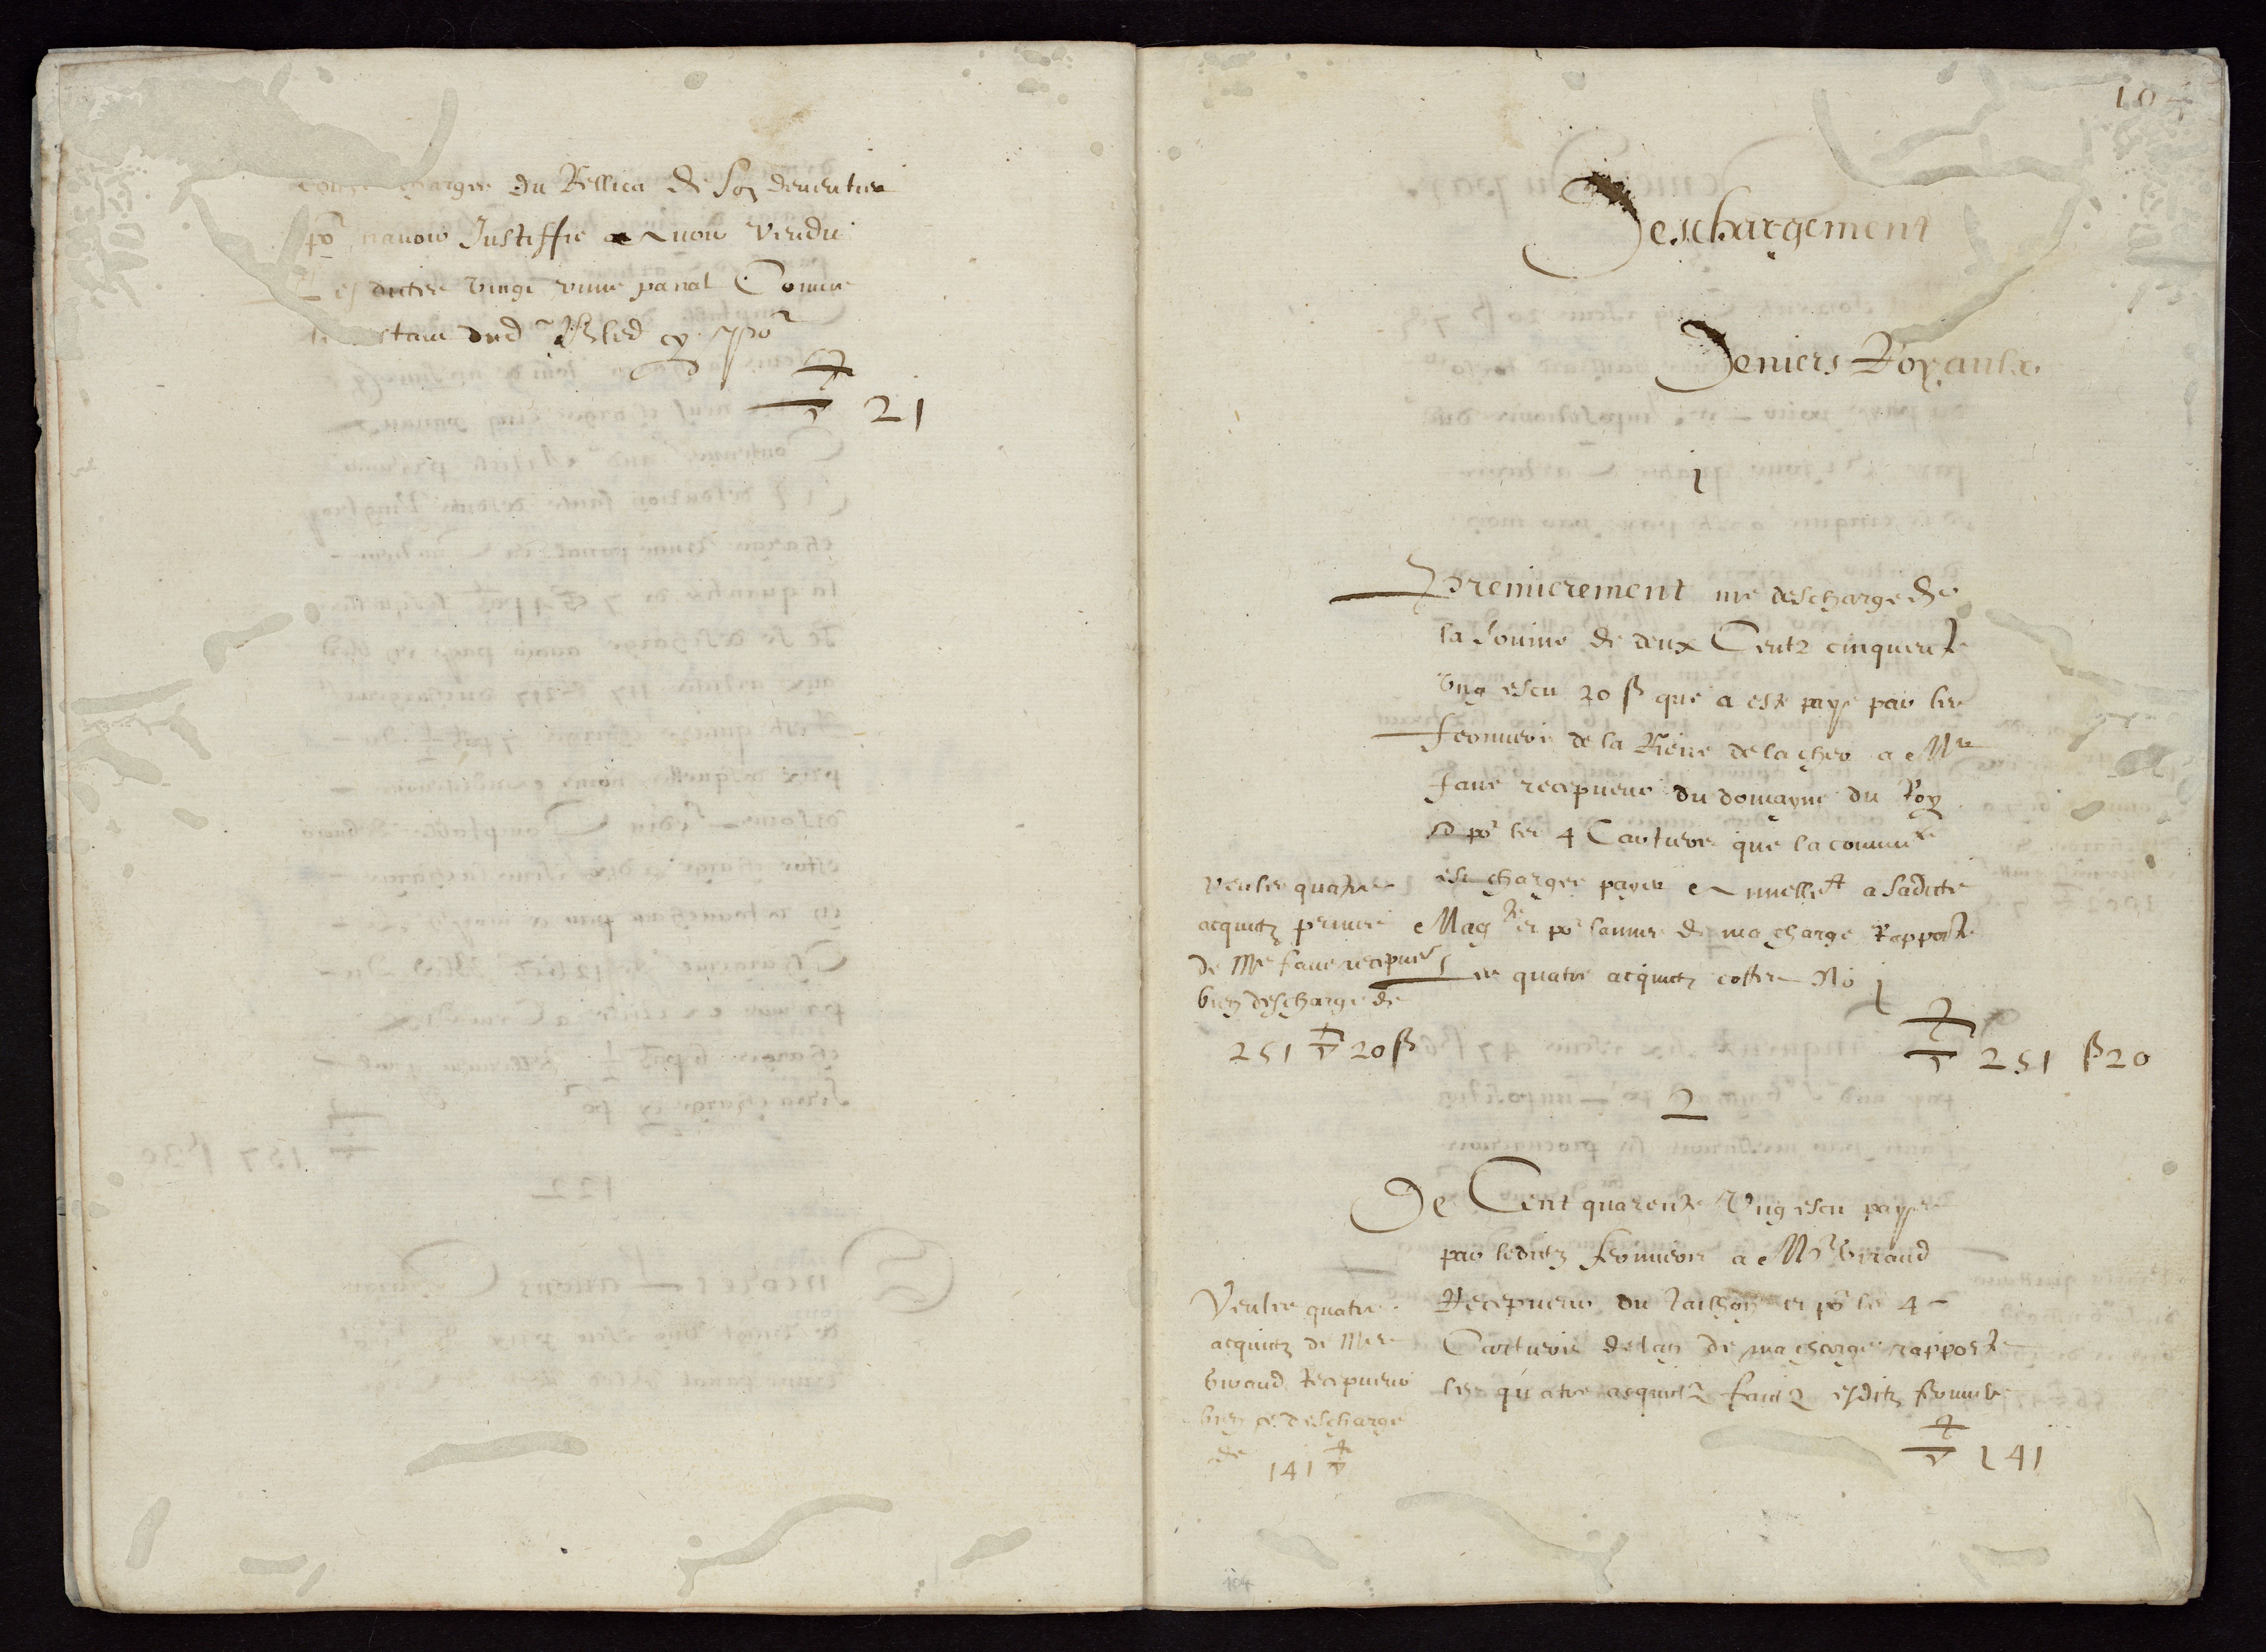 charge du Rellica de son devencier
po navoir Justiffie avoir vendu
Les dictes vingt une panal Comme
dud bled cy po
21
104
Deschargement
Deniers Royaulx
1
Premierement me descharge de
la somme de deux Centz cinquente
ung escu 20 ß que a este paye par les
fermiers de la Reve de la cher a Mre
fave recepveur du domayne du Roy
et po les 4 Cartiers que la commute
est charge payer annuellet a sadicte
Magte et po lannee de ma charge Rapporte
les quatre acquictz cottes No 1
251 ß 20
Veu les quatre
acquictz
de Mre fave recepveur
bien descharge de
251 20 ß
2
De Cent quarente Ung escu paye
par lesdictz fermiers a Mr Giraud
Recepveur du tailhon et po les 4
Cartiers de lan de ma charge rapporte
les quatre acquictz faictz esdictz fermiers
141
Veu les quatre
acquictz de Mre
Giraud Recepveur
bien descharge
de 141
104